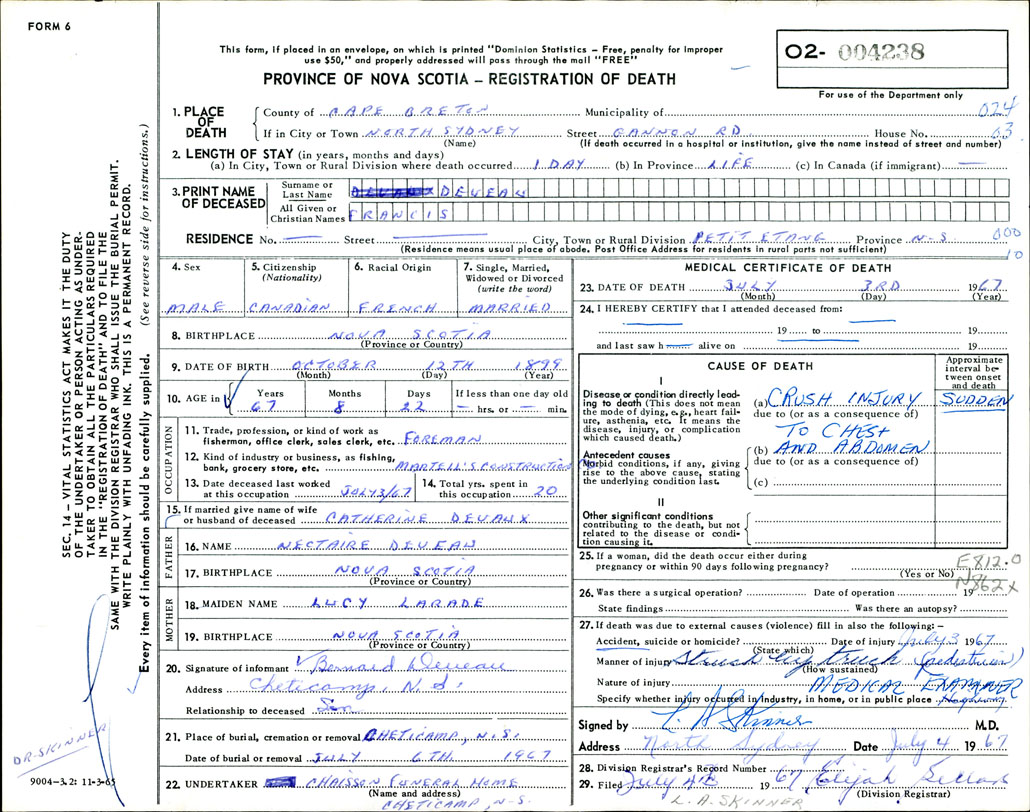 FORM 6
This form, if placed in an envelope, on which is printed "Dominion Statistics – Free, penalty for improper
use $50," and properly addressed will pass through the mail "FREE"
PROVINCE OF NOVA SCOTIA – REGISTRATION OF DEATH
02- 004238
For use of the Department only
1. PLACE OF DEATH
County of CAPE BRETON Municipality of 024
If in City or Town NORTH SYDNEY Street CANNON RD House No. 03
(Name) (If death occurred in a hospital or institution, give the name instead of street and number)
2. LENGTH OF STAY (in years, months and days)
(a) In City, Town or Rural Division where death occurred 1 DAY (b) In Province LIFE (c) In Canada (if immigrant) —
3. PRINT NAME OF DECEASED
Surname or Last Name DEVEAU
All Given or Christian Names FRANCIS
RESIDENCE No. — Street — City, Town or Rural Division PETIT ETANG Province N-S 000
(Residence means usual place of abode. Post Office Address for residents in rural parts not sufficient) 10
4. Sex
MALE
5. Citizenship (Nationality)
CANADIAN
6. Racial Origin
FRENCH
7. Single, Married, Widowed or Divorced (write the word)
MARRIED
8. BIRTHPLACE NOVA SCOTIA
(Province or Country)
9. DATE OF BIRTH OCTOBER 12TH 1899
(Month) (Day) (Year)
10. AGE in Years Months Days If less than one day old
67 8 22 — hrs. or — min.
OCCUPATION
11. Trade, profession, or kind of work as
fisherman, office clerk, sales clerk, etc. FOREMAN
12. Kind of industry or business, as fishing,
bank, grocery store, etc. MARTELL'S CONSTRUCTION
13. Date deceased last worked
at this occupation JULY 3/67
14. Total yrs. spent in
this occupation 20
15. If married give name of wife
or husband of deceased CATHERINE DEVAUX
FATHER
16. NAME NECTAIRE DEVEAU
17. BIRTHPLACE NOVA SCOTIA
(Province or Country)
MOTHER
18. MAIDEN NAME LUCY LARADE
19. BIRTHPLACE NOVA SCOTIA
(Province or Country)
20. Signature of informant Bernard Deveau
Address Cheticamp, N.S.
Relationship to deceased Son
21. Place of burial, cremation or removal CHETICAMP, N.S.
Date of burial or removal JULY 6TH. 1967
22. UNDERTAKER CHAISSON FUNERAL HOME
(Name and address)
CHETICAMP, N-S.
MEDICAL CERTIFICATE OF DEATH
23. DATE OF DEATH JULY 3RD 1967
(Month) (Day) (Year)
24. I HEREBY CERTIFY that I attended deceased from:
19 to 19
and last saw h alive on 19
CAUSE OF DEATH
Approximate interval between onset and death
I
Disease or condition directly leading to death (This does not mean the mode of dying, e.g., heart failure, asthenia, etc. It means the disease, injury, or complication which caused death.)
(a) CRUSH INJURY SUDDEN
due to (or as a consequence of)
TO CHEST
Antecedent causes
Morbid conditions, if any, giving rise to the above cause, stating the underlying condition last.
(b) AND ABDOMEN
due to (or as a consequence of)
(c)
II
Other significant conditions
contributing to the death, but not related to the disease or condition causing it.
25. If a woman, did the death occur either during
pregnancy or within 90 days following pregnancy?
(Yes or No)
E812.0
N862X
26. Was there a surgical operation? Date of operation 19
State findings Was there an autopsy?
27. If death was due to external causes (violence) fill in also the following: –
Accident, suicide or homicide? Date of injury July 3 1967
(State which)
Manner of injury Struck by truck (pedestrian)
(How sustained)
Nature of injury MEDICAL EXAMINER
Specify whether injury occurred in industry, in home, or in public place
Signed by L A Skinner M.D.
Address North Sydney Date July 4 1967
28. Division Registrar's Record Number
29. Filed July 19 67 Elijah
(Division Registrar)
L. A. SKINNER
SEC. 14 – VITAL STATISTICS ACT MAKES IT THE DUTY
OF THE UNDERTAKER OR PERSON ACTING AS UNDER-
TAKER TO OBTAIN ALL THE PARTICULARS REQUIRED
IN THE "REGISTRATION OF DEATH" AND TO FILE THE
SAME WITH THE DIVISION REGISTRAR WHO SHALL ISSUE THE BURIAL PERMIT.
WRITE PLAINLY WITH UNFADING INK. THIS IS A PERMANENT RECORD.
Every item of information should be carefully supplied. (See reverse side for instructions.)
DR. SKINNER
9004–3.2: 11-3-65